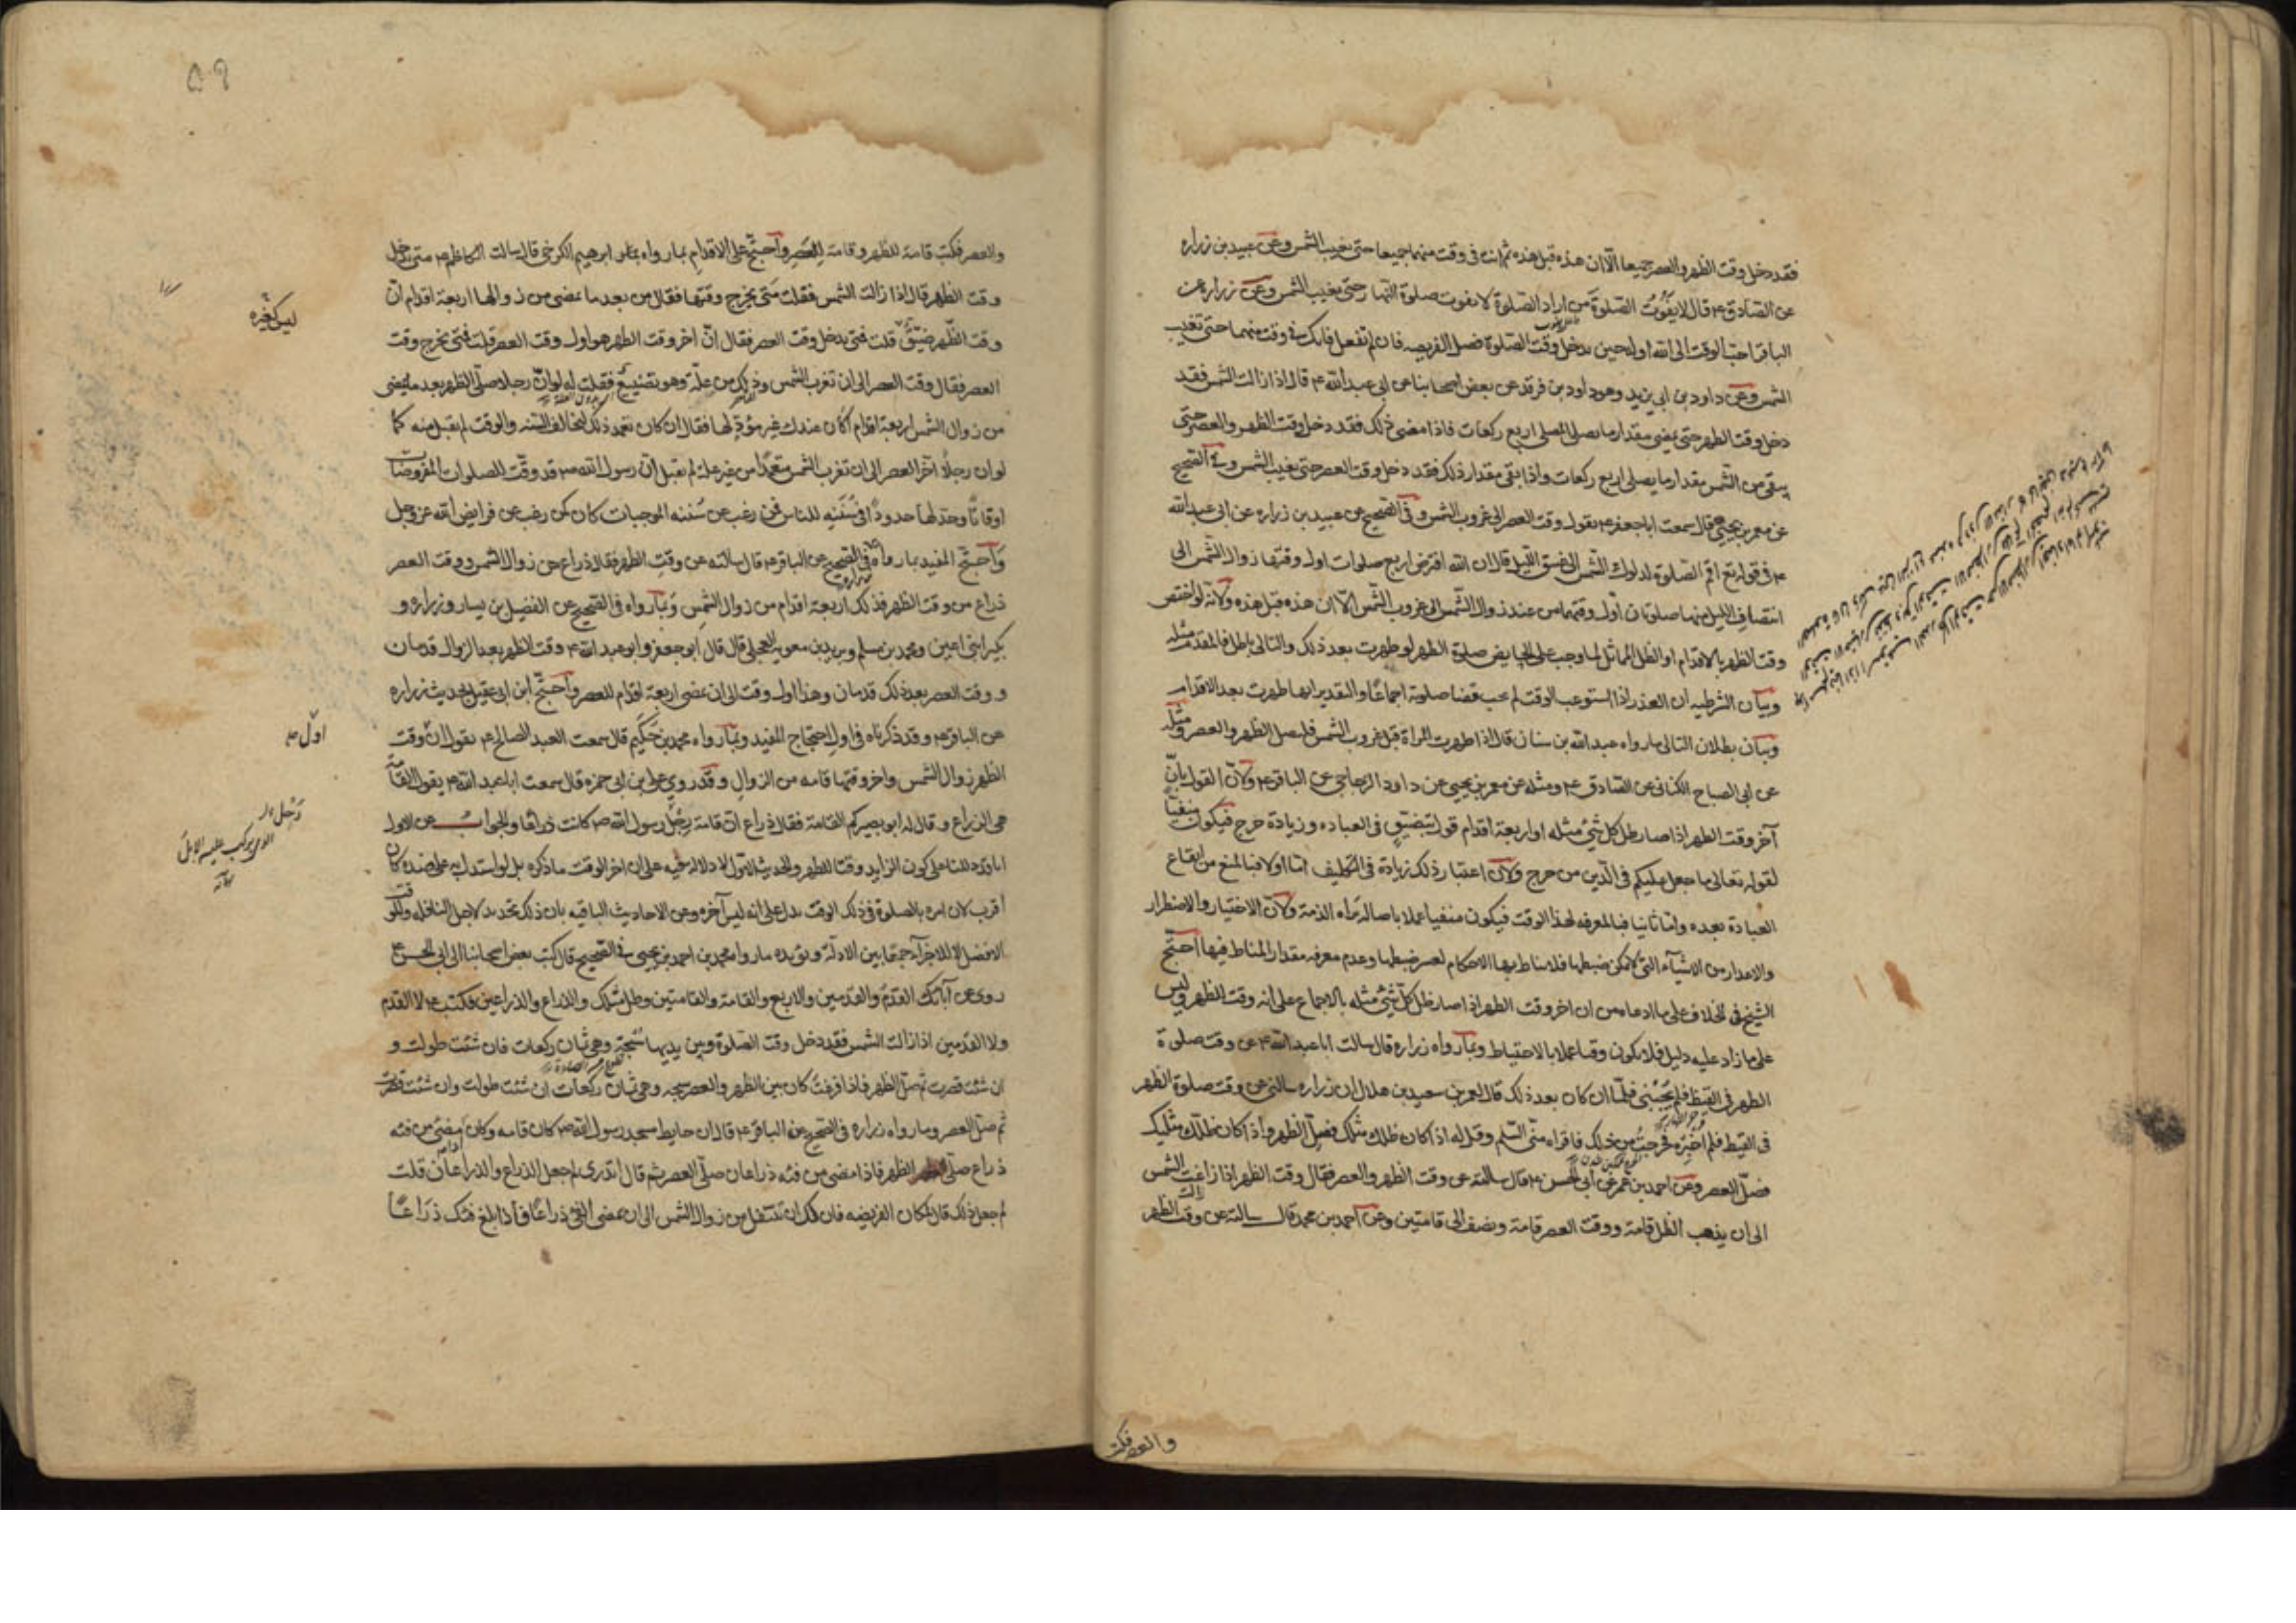 فقد دخل وقت الظهر والعصر جميعا الّا ان هذه قبل هذه ثم انت فى وقت منهما جميعا حتى تغيب الشمس وعن عبيد بن زراره
عن الصّادق ع قال لا يفوت الصّلوة من اراد الصّلوة لا تفوت صلوة النهار حتّى تغيب الشمس وعن زراره عن
الباقر احبّ الوقت الى الله اوله حين يدخل وقت الصّلوة فصل الفريضه فان لم تفعل فانك فى وقت منهما حتى تغيب
الشمس وعن داود بن ابى يزيد وهو داود بن فرقد عن بعض اصحابنا عن ابى عبد الله ع قال اذا زالت الشمس فقد
دخل وقت الظهر حتى يمضى مقدار ما يصلى المصلى اربع ركعات فاذا مضى ذلك فقد دخل وقت الظهر والعصر حتى
يبقى من الشّمس مقدار ما يصلى اربع ركعات واذا بقى مقدار ذلك فقد دخل وقت العصر حتى تغيب الشمس وفى الصّحيح
عن معمر بن يحيى قال سمعت ابا جعفر ع يقول وقت العصر الى غروب الشمس وفى الصّحيح عن عبيد بن زراره عن ابى عبد الله
ع فى قوله تع اقم الصّلوة لدلوك الشّمس الى غسق اللّيل قال ان الله افترض اربع صلوات اول وقتها زوال الشّمس الى
انتصاف الليل منها صلوتان اوّل وقتهما من عند زوال الشّمس الى غروب الشّمس الّا ان هذه قبل هذه ولانّه لو اختص
وقت الظهر بالاقدام او الظل المماثل لما وجب على الحايض صلوة الظهر لو طهرت بعد ذلك والتالى باطل فالمقدم مثله
وبيان الشرطيه ان العذر اذا استوعب الوقت لم يجب قضا صلوته اجماعًا والتقدير انها طهرت بعد الاقدام
وبيان بطلان التالى ما رواه عبد الله بن سنان قال اذا طهرت المراة قبل غروب الشمس فلتصل الظهر والعصر ومثله
عن ابى الصباح الكنانى عن الصّادق ع ومثله عن معمر بن يحيى عن داود الزجاجى عن الباقر ع ولانّ القول بانّ
آخر وقت الظهر اذا صار ظل كل شئ مثله او اربعة اقدام قول بتضييق فى العباده وزيادة حرج فيكون منفيّا
لقوله تعالى ما جعل عليكم فى الدّين من حرج ولانّ اعتبار ذلك زيادة فى التكليف امّا اولا فبالمنع من ايقاع
العبادة بعده وامّا ثانيا فبالمعرفه لهذا الوقت فيكون منفيا عملا باصالة براه الذمة ولانّ الاختيار والاضطرار
والاعذار من الاشيآء التى لا يمكن ضبطها فلا يناط بها الاحكام لعسر ضبطها وعدم معرفه مقدار المناط فيها احتجّ
الشيخ فى الخلاف على ما ادعاه من ان اخر وقت الظهر اذا صار ظل كلّ شئ مثله بالاجماع على انه وقت الظهر وليس
على ما زاد عليه دليل فلا يكون وقتا عملا بالاحتياط وبما رواه زراره قال سالت ابا عبد الله ع عن وقت صلوة
الظهر فى القيظ فلم يجبنى فلمّا ان كان بعد ذلك قال لعمر بن سعيد بن هلال ان زراره سالنى عن وقت صلوة الظهر
فى القيظ فلم اخبره فحرجت من ذلك فاقراه منّى السّلم وقل له اذا كان ظلك مثلك فصلّ الظهر واذا كان ظلك مثليك
فصلّ العصر وعن احمد بن عمر عن ابى الحسن ع قال سالته عن وقت الظهر والعصر فقال وقت الظهر اذا زاغت الشمس
الى ان يذهب الظل قامة ووقت العصر قامة ونصف الى قامتين وعن احمد بن محمد قال سالته عن وقت الظهر
والعصر فكتب
والعصر فكتب قامة للظهر وقامة للعصر واحتجّ على الاقدام بما رواه ابرهيم الكرخى قال سالت الكاظم ع متى يدخل
وقت الظهر قال اذا زالت الشمس فقلت متى يخرج وقتها فقال من بعد ما يمضى من زوالها اربعة اقدام انّ
وقت الظّهر ضيّق قلت فمتى يدخل وقت العصر فقال انّ اخر وقت الظهر هو اول وقت العصر قلت فمتى يخرج وقت
العصر فقال وقت العصر الى ان تغرب الشمس وذلك من علّة وهو تضييع فقلت له لو انّ رجلا صلّى الظهر بعد ما يمضى
من زوال الشمس اربعة اقدام اكان عندك غير مؤدّ لها فقال ان كان تعمد ذلك ليخالف السّنه والوقت لم يقبل منه كما
لو ان رجلًا اخّر العصر الى ان تغرب الشمس متعمّدا من غير علة لم يقبل انّ رسول الله ص قد وقّت للصلوات المفروضات
اوقاتًا وحدّ لها حدودًا فى سُنّته للناس فمن رغب عن سُنّنه الموجبات كان كمن رغب عن فرايض الله عز وجل
واحتجّ المفيد بما رواه فى الصّحيح عن الباقر ع قال سالته عن وقت الظهر فقال ذراع من زوال الشمس ووقت العصر
ذراع من وقت الظهر فذلك اربعة اقدام من زوال الشمس وبما رواه فى الصّحيح عن الفضيل بن يسار وزراره و
بكير ابنى اعين ومحمد بن مسلم وبريد بن معوية العجلى قال قال ابو جعفر وابو عبد الله ع وقت الظهر بعد الزوال قدمان
ووقت العصر بعد ذلك قدمان وهذا اول وقت الى ان يمضى اربعة اقدام للعصر واحتجّ ابن ابى عقيل بحديث زراره
عن الباقر ع وقد ذكرناه فى اول احتجاج المفيد وبما رواه محمد بن حكيم قال سمعت العبد الصالح ع يقول انّ وقت
الظهر زوال الشمس واخر وقتها قامه من الزوال وقد روى على بن ابى حمزه قال سمعت ابا عبد الله ع يقول القامة
هى الذراع وقال له ابو بصير كم القامة فقال ذراع انّ قامة رحل رسول الله ص كانت ذراعًا والجواب عن الاول
انا قد دللنا على كون الزايد وقتا للظهر والحديث الاول لا دلالة فيه على ان اخر الوقت ما ذكره بل لو استدل به على ضده كان
اقرب لان امره بالصلوة فى ذلك الوقت يدل على انه ليس آخره وعن الاحاديث الباقيه بان ذلك تحديد لاجل النافله وللوقت
الافضل لا للاجزآء جمعًا بين الادلة ويؤيده ما رواه محمد بن احمد بن يحيى فى الصّحيح قال كتب بعض اصحابنا الى ابى الحسن ع
روى عن آبائك القدم والقدمين والاربع والقامة والقامتين وظل مثلك والذراع والذراعين فكتب ع لا القدم
ولا القدمين اذا زالت الشمس فقد دخل وقت الصّلوة وبين يديها سُبحة وهى ثمان ركعات فان شئت طولت و
ان شئت قصرت ثم صلّ الظهر فاذا فرغت كان بين الظهر والعصر سبحه وهى ثمان ركعات ان شئت طولت وان شئت قصرت
ثم صلّ العصر وما رواه زراره فى الصّحيح عن الباقر ع قال ان حايط مسجد رسول الله ص كان قامه وكان اذا مضى من فيئه
ذراع صلّى الظهر فاذا مضى من فيئه ذراعان صلّى العصر ثم قال اتدرى لم جعل الذراع والذراعان قلت
لم جعل ذلك قال لمكان الفريضه فان لك ان تتنفل من زوال الشمس الى ان يمضى الفئ ذراعًا فاذا بلغ فيئك ذراعًا
ليس كغيره
اوّل ع